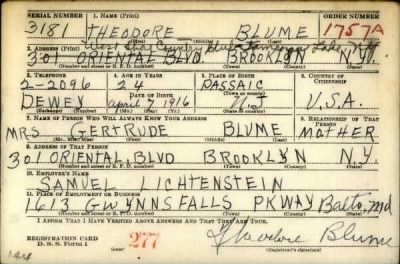 SERIAL NUMBER 1. NAME (Print) ORDER NUMBER
3181 THEODORE BLUME 1757A
(First) (Middle) (Last)
2. ADDRESS (Print) West Shore Country Club Lake N.Y.
301 ORIENTAL BLVD. BROOKLYN N.Y.
(Number and street or R. F. D. number) (Town) (County) (State)
3. TELEPHONE 4. AGE IN YEARS 5. PLACE OF BIRTH 6. COUNTRY OF CITIZENSHIP
2-2096 24 PASSAIC
DATE OF BIRTH
DEWEY April 7, 1916 N.J U.S.A.
7. NAME OF PERSON WHO WILL ALWAYS KNOW YOUR ADDRESS 8. RELATIONSHIP OF THAT PERSON
MRS GERTRUDE BLUME MOTHER
(Mr., Mrs., Miss) (First) (Middle) (Last)
9. ADDRESS OF THAT PERSON
301 ORIENTAL, BLVD BROOKLYN N.Y.
(Number and street or R. F. D. number) (Town) (County) (State)
10. EMPLOYER'S NAME
SAMUEL LICHTENSTEIN
11. PLACE OF EMPLOYMENT OR BUSINESS
1613 GWYNNSFALLS PKWAY Balto. Md
(Number and street or R. F. D. number) (Town) (County) (State)
I AFFIRM THAT I HAVE VERIFIED ABOVE ANSWERS AND THAT THEY ARE TRUE.
REGISTRATION CARD
D. S. S. Form 1 277 Theodore Blume
(Registrant's signature)
144